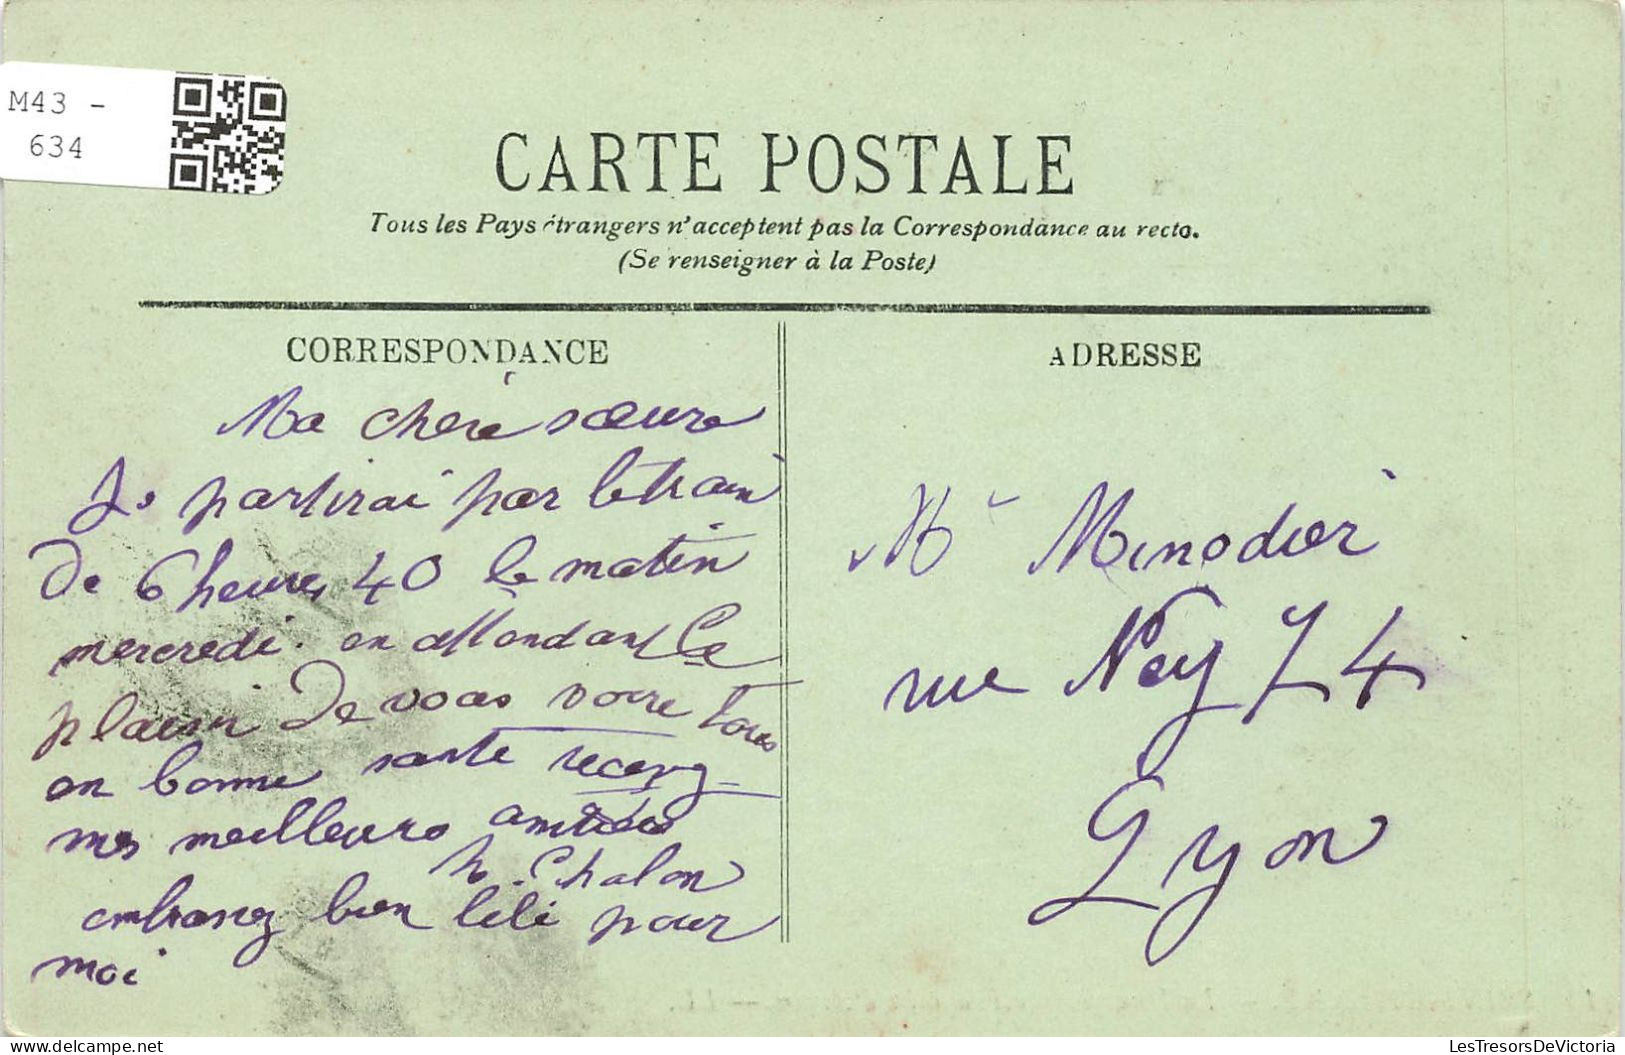 M43 -
634
CARTE POSTALE
Tous les Pays étrangers n'acceptent pas la Correspondance au recto.
(Se renseigner à la Poste)
CORRESPONDANCE
Ma cheré sœure
Je partirai par le train
De 6 heures 40 le matin
mercredi. en attendant Le
plaisir De vous voire tous
en bonne sante recevez
mes meilleurs amitiées
Chalon
embrasez bien lili pour
moi
ADRESSE
Mr Minodier
rue Ney 74
Lyon
LesTresorsDeVictoria